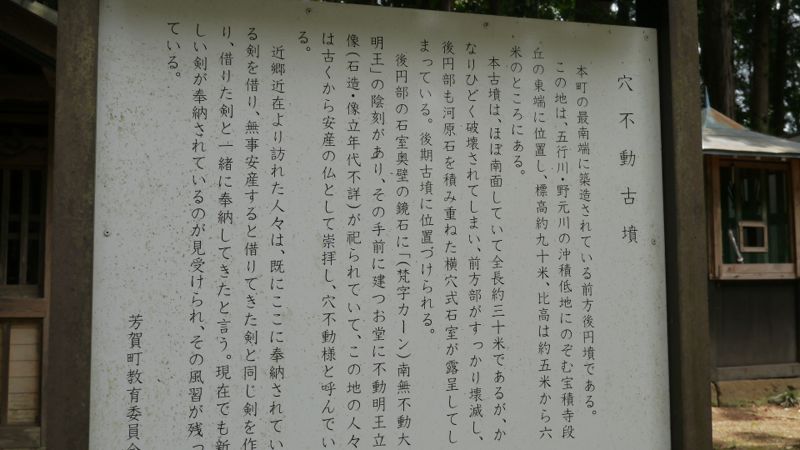 穴不動古墳
本町の最南端に築造されている前方後円墳である。
この地は、五行川・野元川の沖積低地にのぞむ宝積寺段
丘の東端に位置し、標高約九十米、比高は約五米から六
米のところにある。
本古墳は、ほぼ南面していて全長約三十米であるが、か
なりひどく破壊されてしまい、前方部がすっかり壊滅し、
後円部も河原石を積み重ねた横穴式石室が露呈してし
まっている。後期古墳に位置づけられる。
後円部の石室奥壁の鏡石に「(梵字カーン)南無不動大
明王」の陰刻があり、その手前に建つお堂に不動明王立
像(石造・像立年代不詳)が祀られていて、この地の人々
は古くから安産の仏として崇拝し、穴不動様と呼んでい
る。
近郷近在より訪れた人々は、既にここに奉納されてい
る剣を借り、無事安産すると借りてきた剣と同じ剣を作
り、借りた剣と一緒に奉納してきたと言う。現在でも新
しい剣が奉納されているのが見受けられ、その風習が残っ
ている。
芳賀町教育委員会